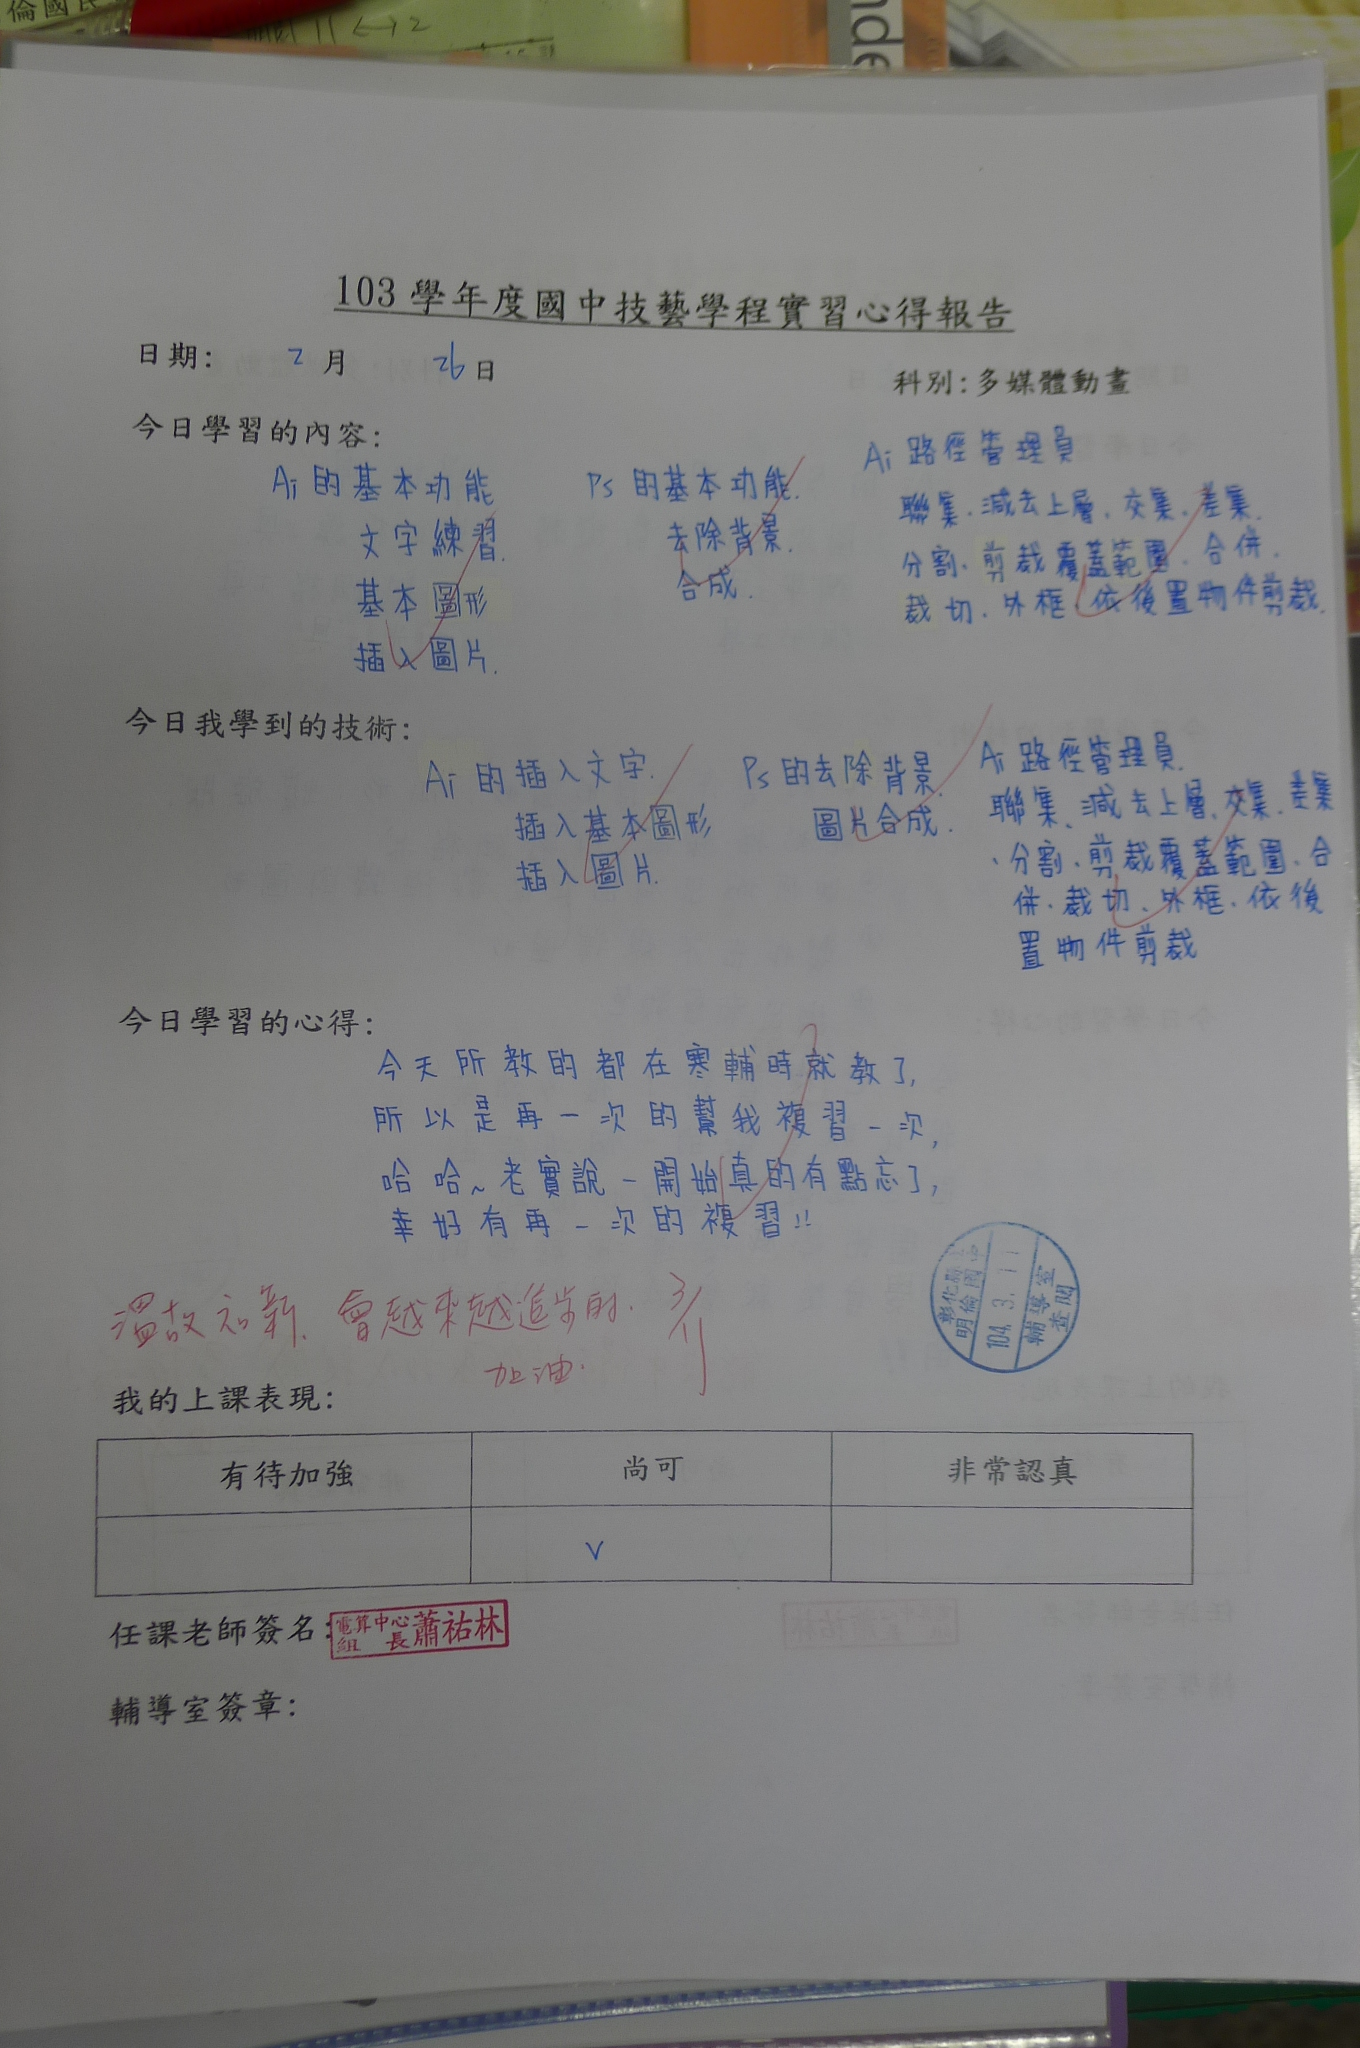 倫國民
nde
103 學年度國中技藝學程實習心得報告
日期: 2 月 26 日
科別:多媒體動畫
今日學習的內容:
Ai 的基本功能
文字練習.
基本圖形
插入圖片.
Ps 的基本功能.
去除背景.
合成.
Ai 路徑管理員
聯集、減去上層、交集、差集、
分割、剪裁覆蓋範圍、合併、
裁切、外框、依後置物件剪裁.
今日我學到的技術:
Ai 的插入文字.
插入基本圖形
插入圖片.
Ps 的去除背景.
圖片合成.
Ai 路徑管理員.
聯集、減去上層、交集、差集
、分割、剪裁覆蓋範圍、合
併、裁切、外框、依後
置物件剪裁
今日學習的心得:
今天所教的都在寒輔時就教了,
所以是再一次的幫我複習一次,
哈哈~老實說一開始真的有點忘了,
幸好有再一次的複習!!
溫故知新、會越來越進步的. 3/11
加油.
彰化縣立
明倫國中
104. 3. 11
輔導室
查閱
我的上課表現:
有待加強 尚可 非常認真
V
任課老師簽名:
電算中心
組長 蕭祐林
輔導室簽章: